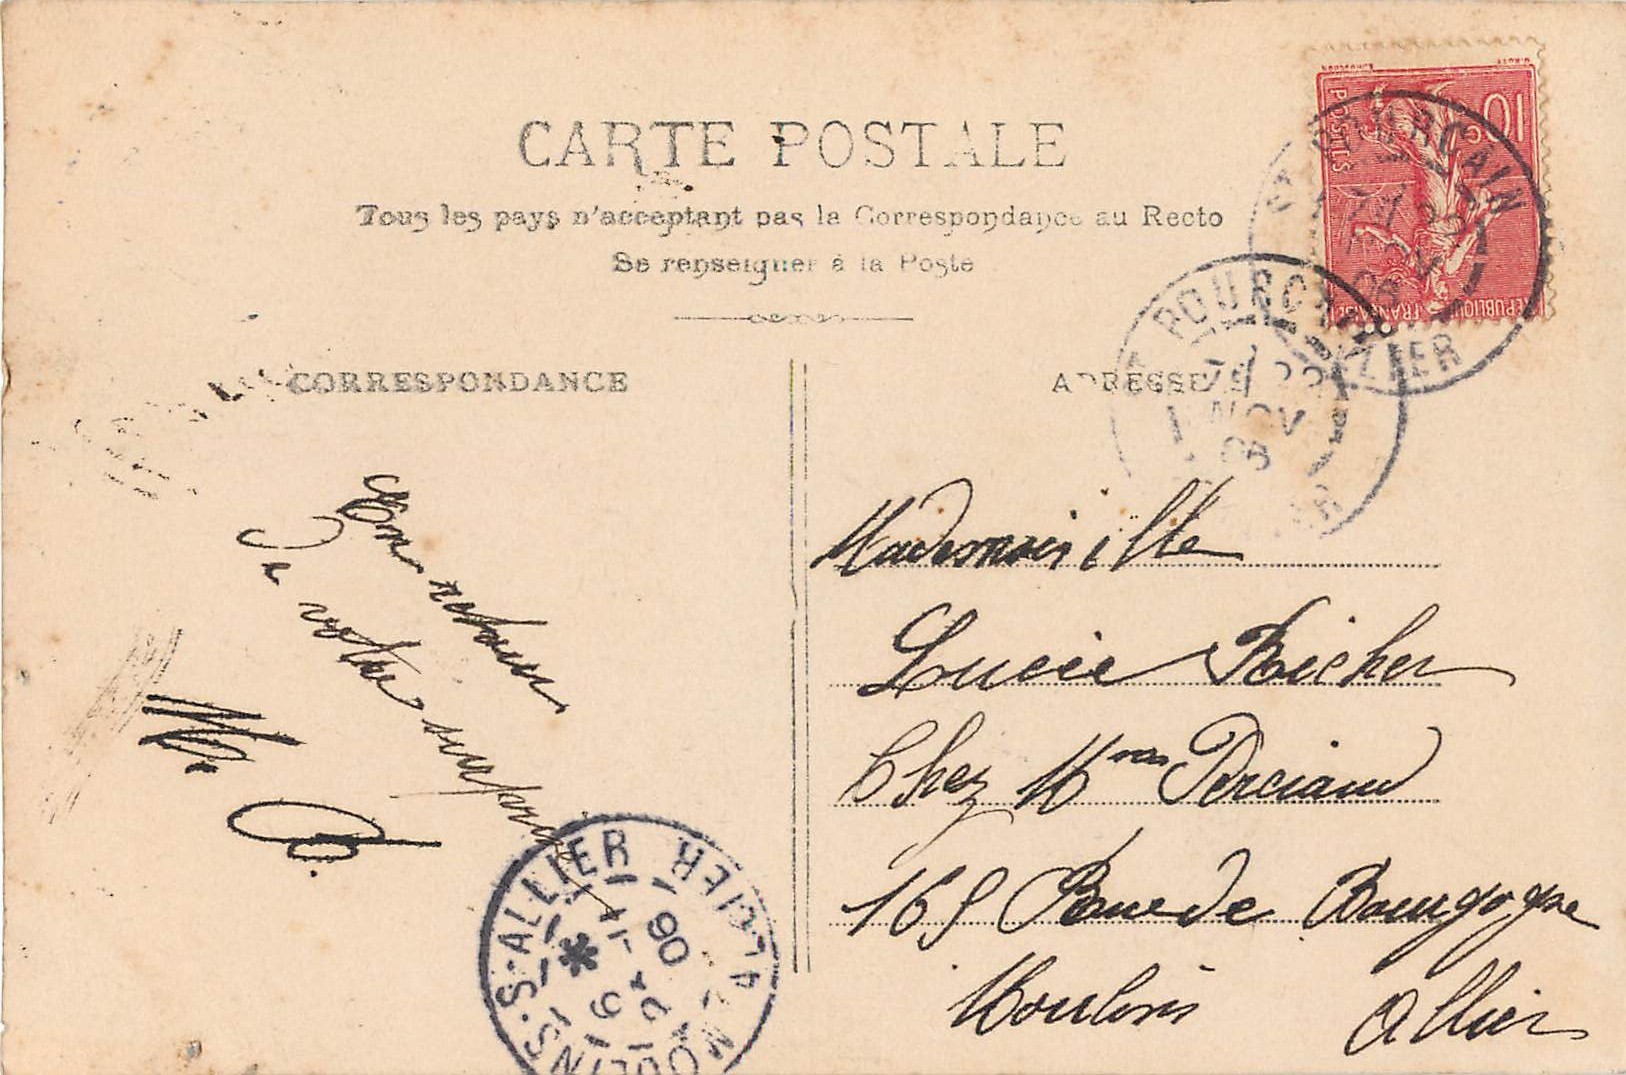 CARTE POSTALE
Tous les pays n'acceptant pas la Correspondance au Recto
Se renseigner à la Poste
CORRESPONDANCE
ADRESSE
10
POSTES
REPUBLIQUE FRANÇAISE
ST POURÇAIN
ALLIER
ST POURÇAIN
NOV
06
En retour
De votre surprise
Mademoiselle
Lucie Richer
Chez Mme Perciaud
169 Rue de Bourgogne
Moulins Allier
MOULINS-S-ALLIER
06